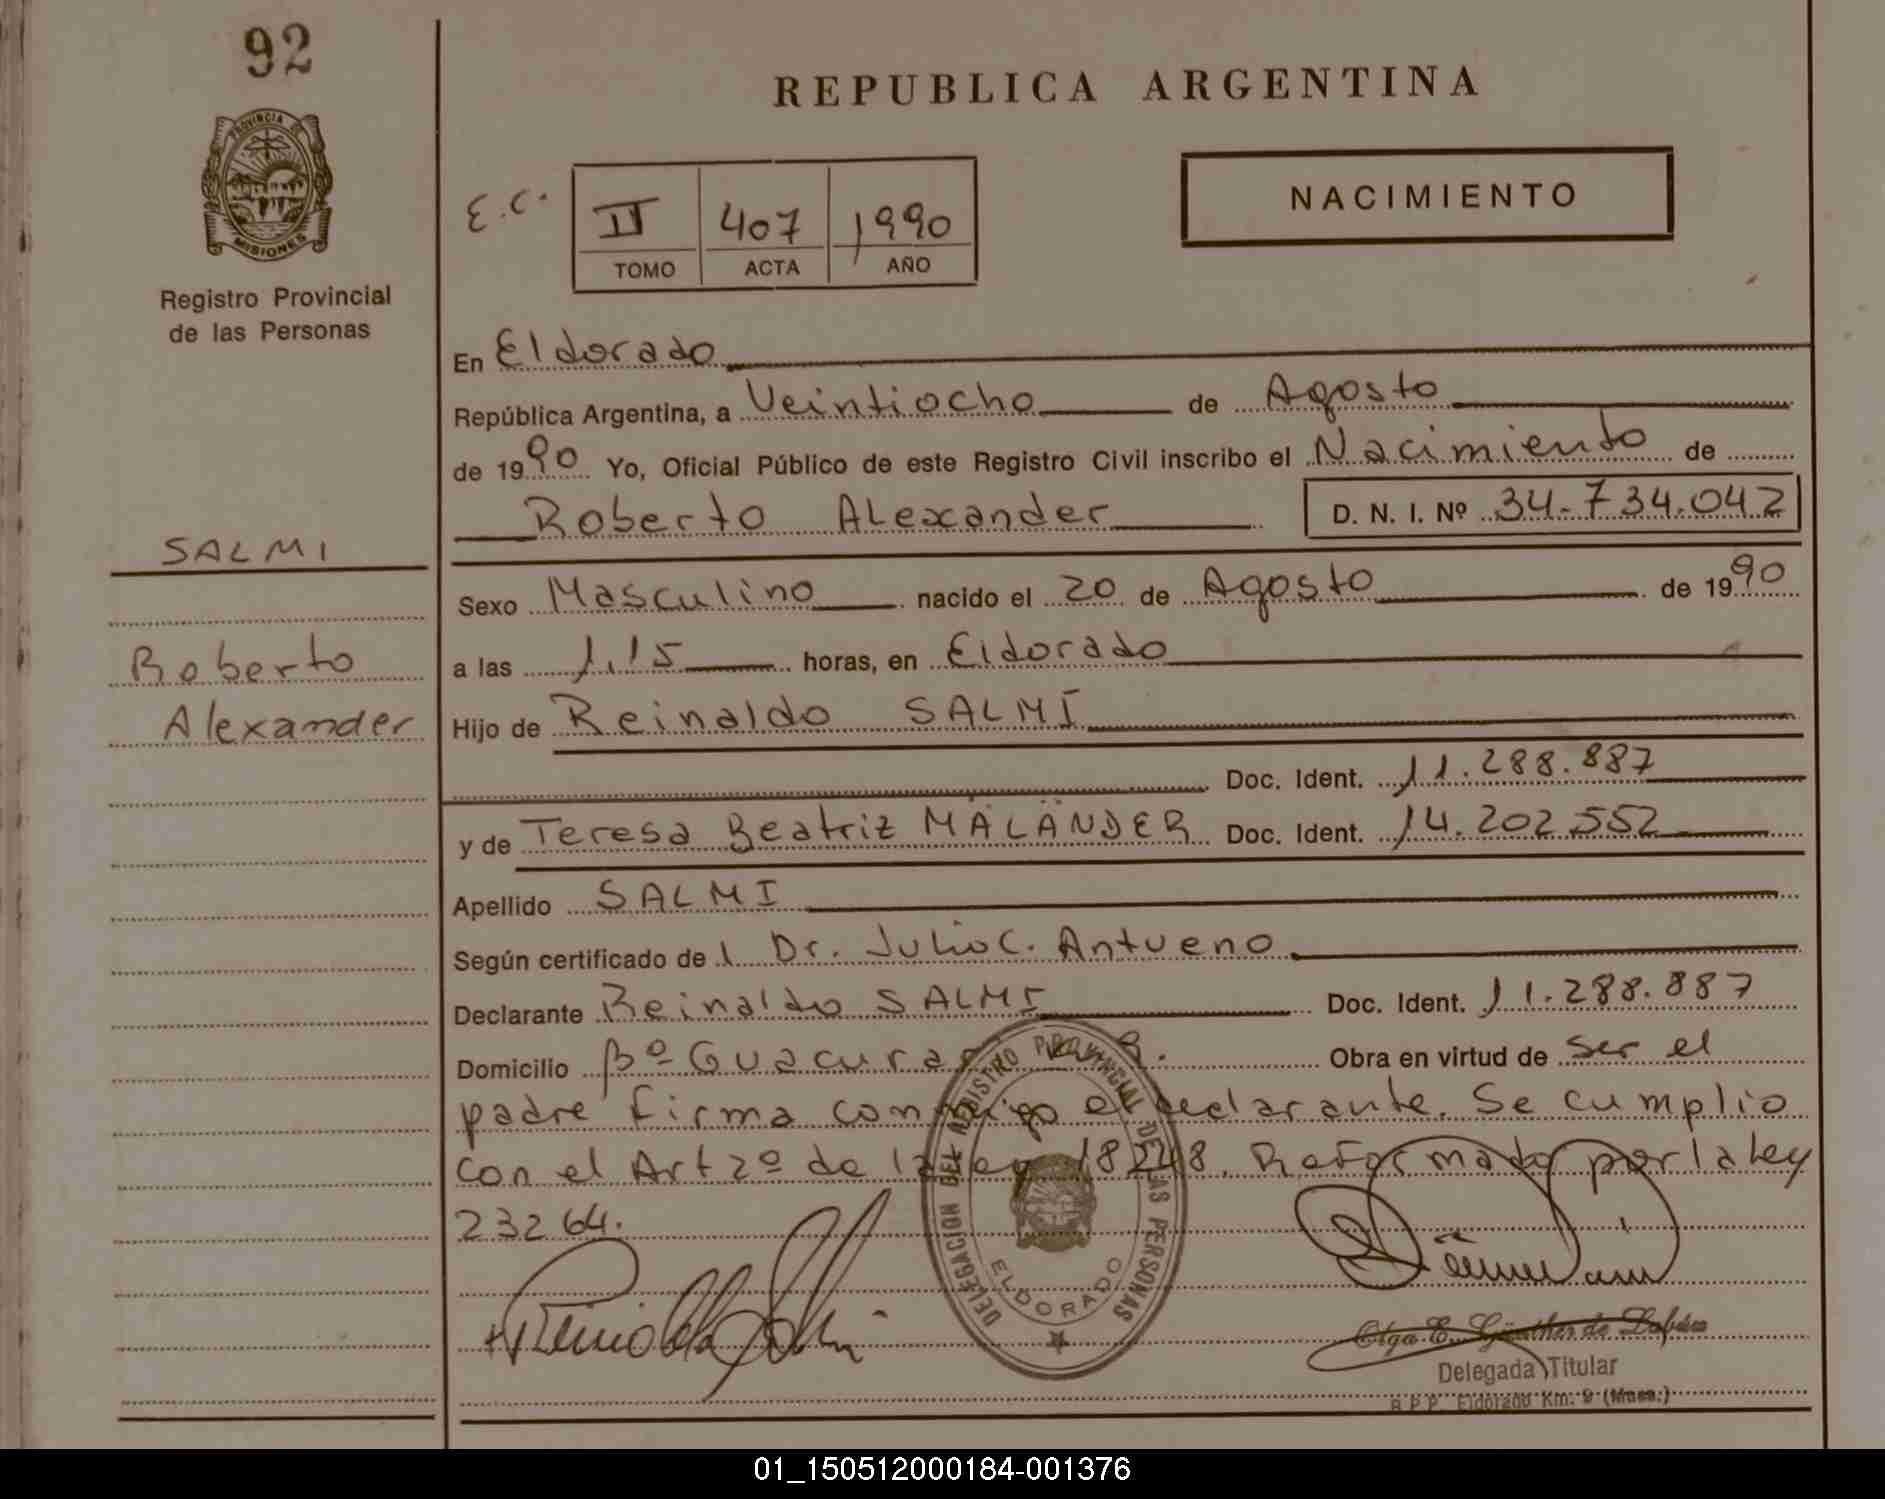 92
PROVINCIA DE
MISIONES
Registro Provincial
de las Personas
SALMI
Roberto
Alexander
REPUBLICA ARGENTINA
E.C.
II 407 1990
TOMO ACTA AÑO
NACIMIENTO
En Eldorado
República Argentina, a Veintiocho de Agosto
de 1990 Yo, Oficial Público de este Registro Civil inscribo el Nacimiento de
Roberto Alexander D. N. I. Nº 34.734.042
Sexo Masculino nacido el 20 de Agosto de 1990
a las 1.15 horas, en Eldorado
Hijo de Reinaldo SALMI
Doc. Ident. 11.288.887
y de Teresa Beatriz MÄLÄNDER Doc. Ident. 14.202.552
Apellido SALMI
Según certificado de l Dr. Julio C. Antueno
Declarante Reinaldo SALMI Doc. Ident. 11.288.887
Domicilio Bº Guacurari Obra en virtud de ser el
padre firma conmigo el declarante. Se cumplio
con el Art 2º de la Ley 18248. Reformado por la Ley
23264.
DELEGACION DEL REGISTRO PROVINCIAL DE LAS PERSONAS
ELDORADO
Olga E. Günther de
Delegada Titular
R.P.P. Eldorado Km. 9 (Mnes.)
01_150512000184-001376